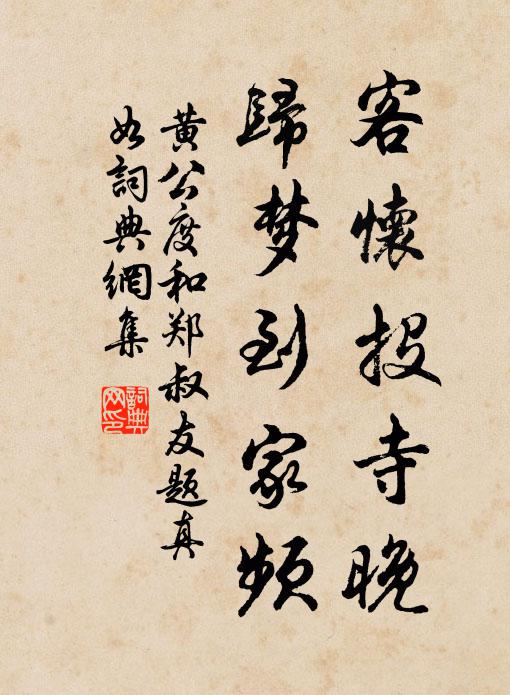 客懷投寺晚
歸梦到家頻
黄公度和郑叔友題真
如詞典網集
詞典網印